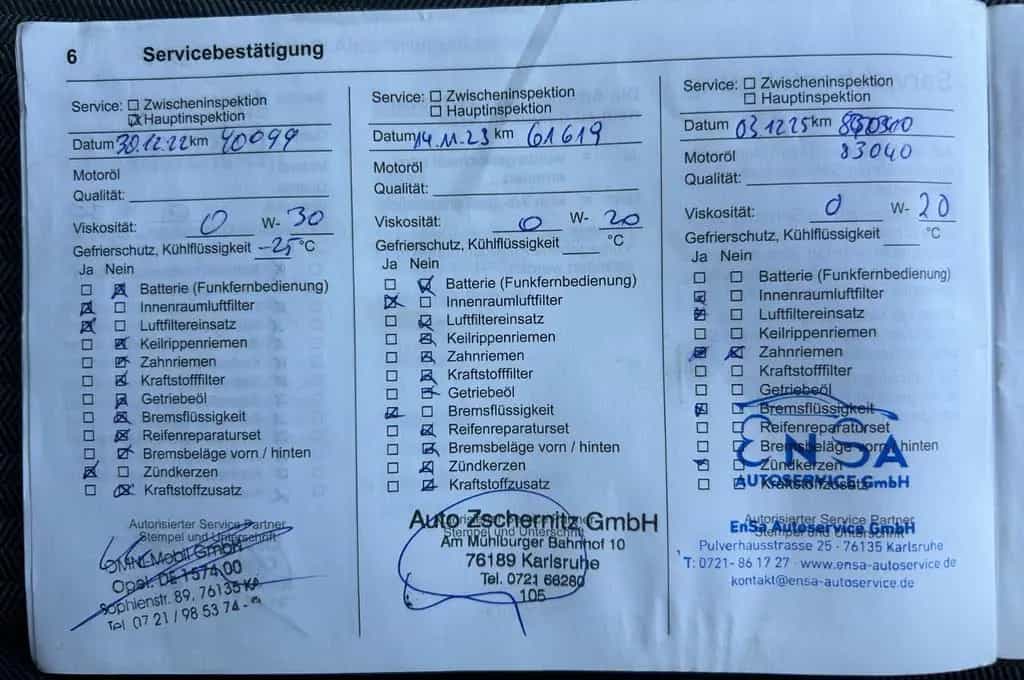 6 Servicebestätigung
Service: Zwischeninspektion
Hauptinspektion
Datum 30.12.22 km 40099
Motoröl
Qualität:
Viskosität: 0 W- 30
Gefrierschutz, Kühlflüssigkeit -25 °C
Ja Nein
Batterie (Funkfernbedienung)
Innenraumluftfilter
Luftfiltereinsatz
Keilrippenriemen
Zahnriemen
Kraftstofffilter
Getriebeöl
Bremsflüssigkeit
Reifenreparaturset
Bremsbeläge vorn / hinten
Zündkerzen
Kraftstoffzusatz
Autorisierter Service Partner
Stempel und Unterschrift
OMNI-Mobil GmbH
Opel: DE 1574 00
Sophienstr. 89, 76135 KA
Tel. 07 21 / 98 53 74 -
Service: Zwischeninspektion
Hauptinspektion
Datum 14.11.23 km 61619
Motoröl
Qualität:
Viskosität: 0 W- 20
Gefrierschutz, Kühlflüssigkeit °C
Ja Nein
Batterie (Funkfernbedienung)
Innenraumluftfilter
Luftfiltereinsatz
Keilrippenriemen
Zahnriemen
Kraftstofffilter
Getriebeöl
Bremsflüssigkeit
Reifenreparaturset
Bremsbeläge vorn / hinten
Zündkerzen
Kraftstoffzusatz
Auto Zschernitz GmbH
Stempel und Unterschrift
Am Mühlburger Bahnhof 10
76189 Karlsruhe
Tel. 0721 66280
105
Service: Zwischeninspektion
Hauptinspektion
Datum 03.12.25 km
Motoröl 83040
Qualität:
Viskosität: 0 W- 20
Gefrierschutz, Kühlflüssigkeit °C
Ja Nein
Batterie (Funkfernbedienung)
Innenraumluftfilter
Luftfiltereinsatz
Keilrippenriemen
Zahnriemen
Kraftstofffilter
Getriebeöl
Bremsflüssigkeit
Reifenreparaturset
Bremsbeläge vorn / hinten
Zündkerzen
Kraftstoffzusatz
ENSA
AUTOSERVICE GmbH
Autorisierter Service Partner
EnSa Autoservice GmbH
Stempel und Unterschrift
Pulverhausstrasse 25 - 76135 Karlsruhe
T: 0721- 86 17 27 · www.ensa-autoservice.de
kontakt@ensa-autoservice.de